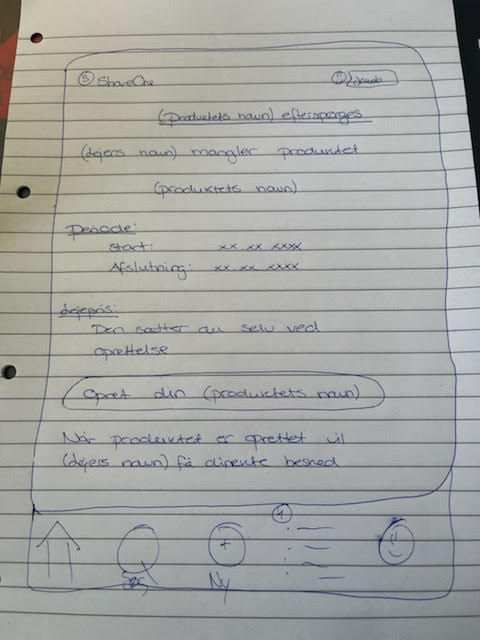 S ShareOne
Jacob
(Produktets navn) efterspørges
(lejers navn) mangler produktet
(produktets navn)
Periode:
Start: xx.xx.xxxx
Afslutning: xx.xx.xxxx
Lejepris:
Den sætter du selv ved
oprettelse
Opret din (produktets navn)
Når produktet er oprettet vil
(lejers navn) få direkte besked
1
+
Søg
Ny